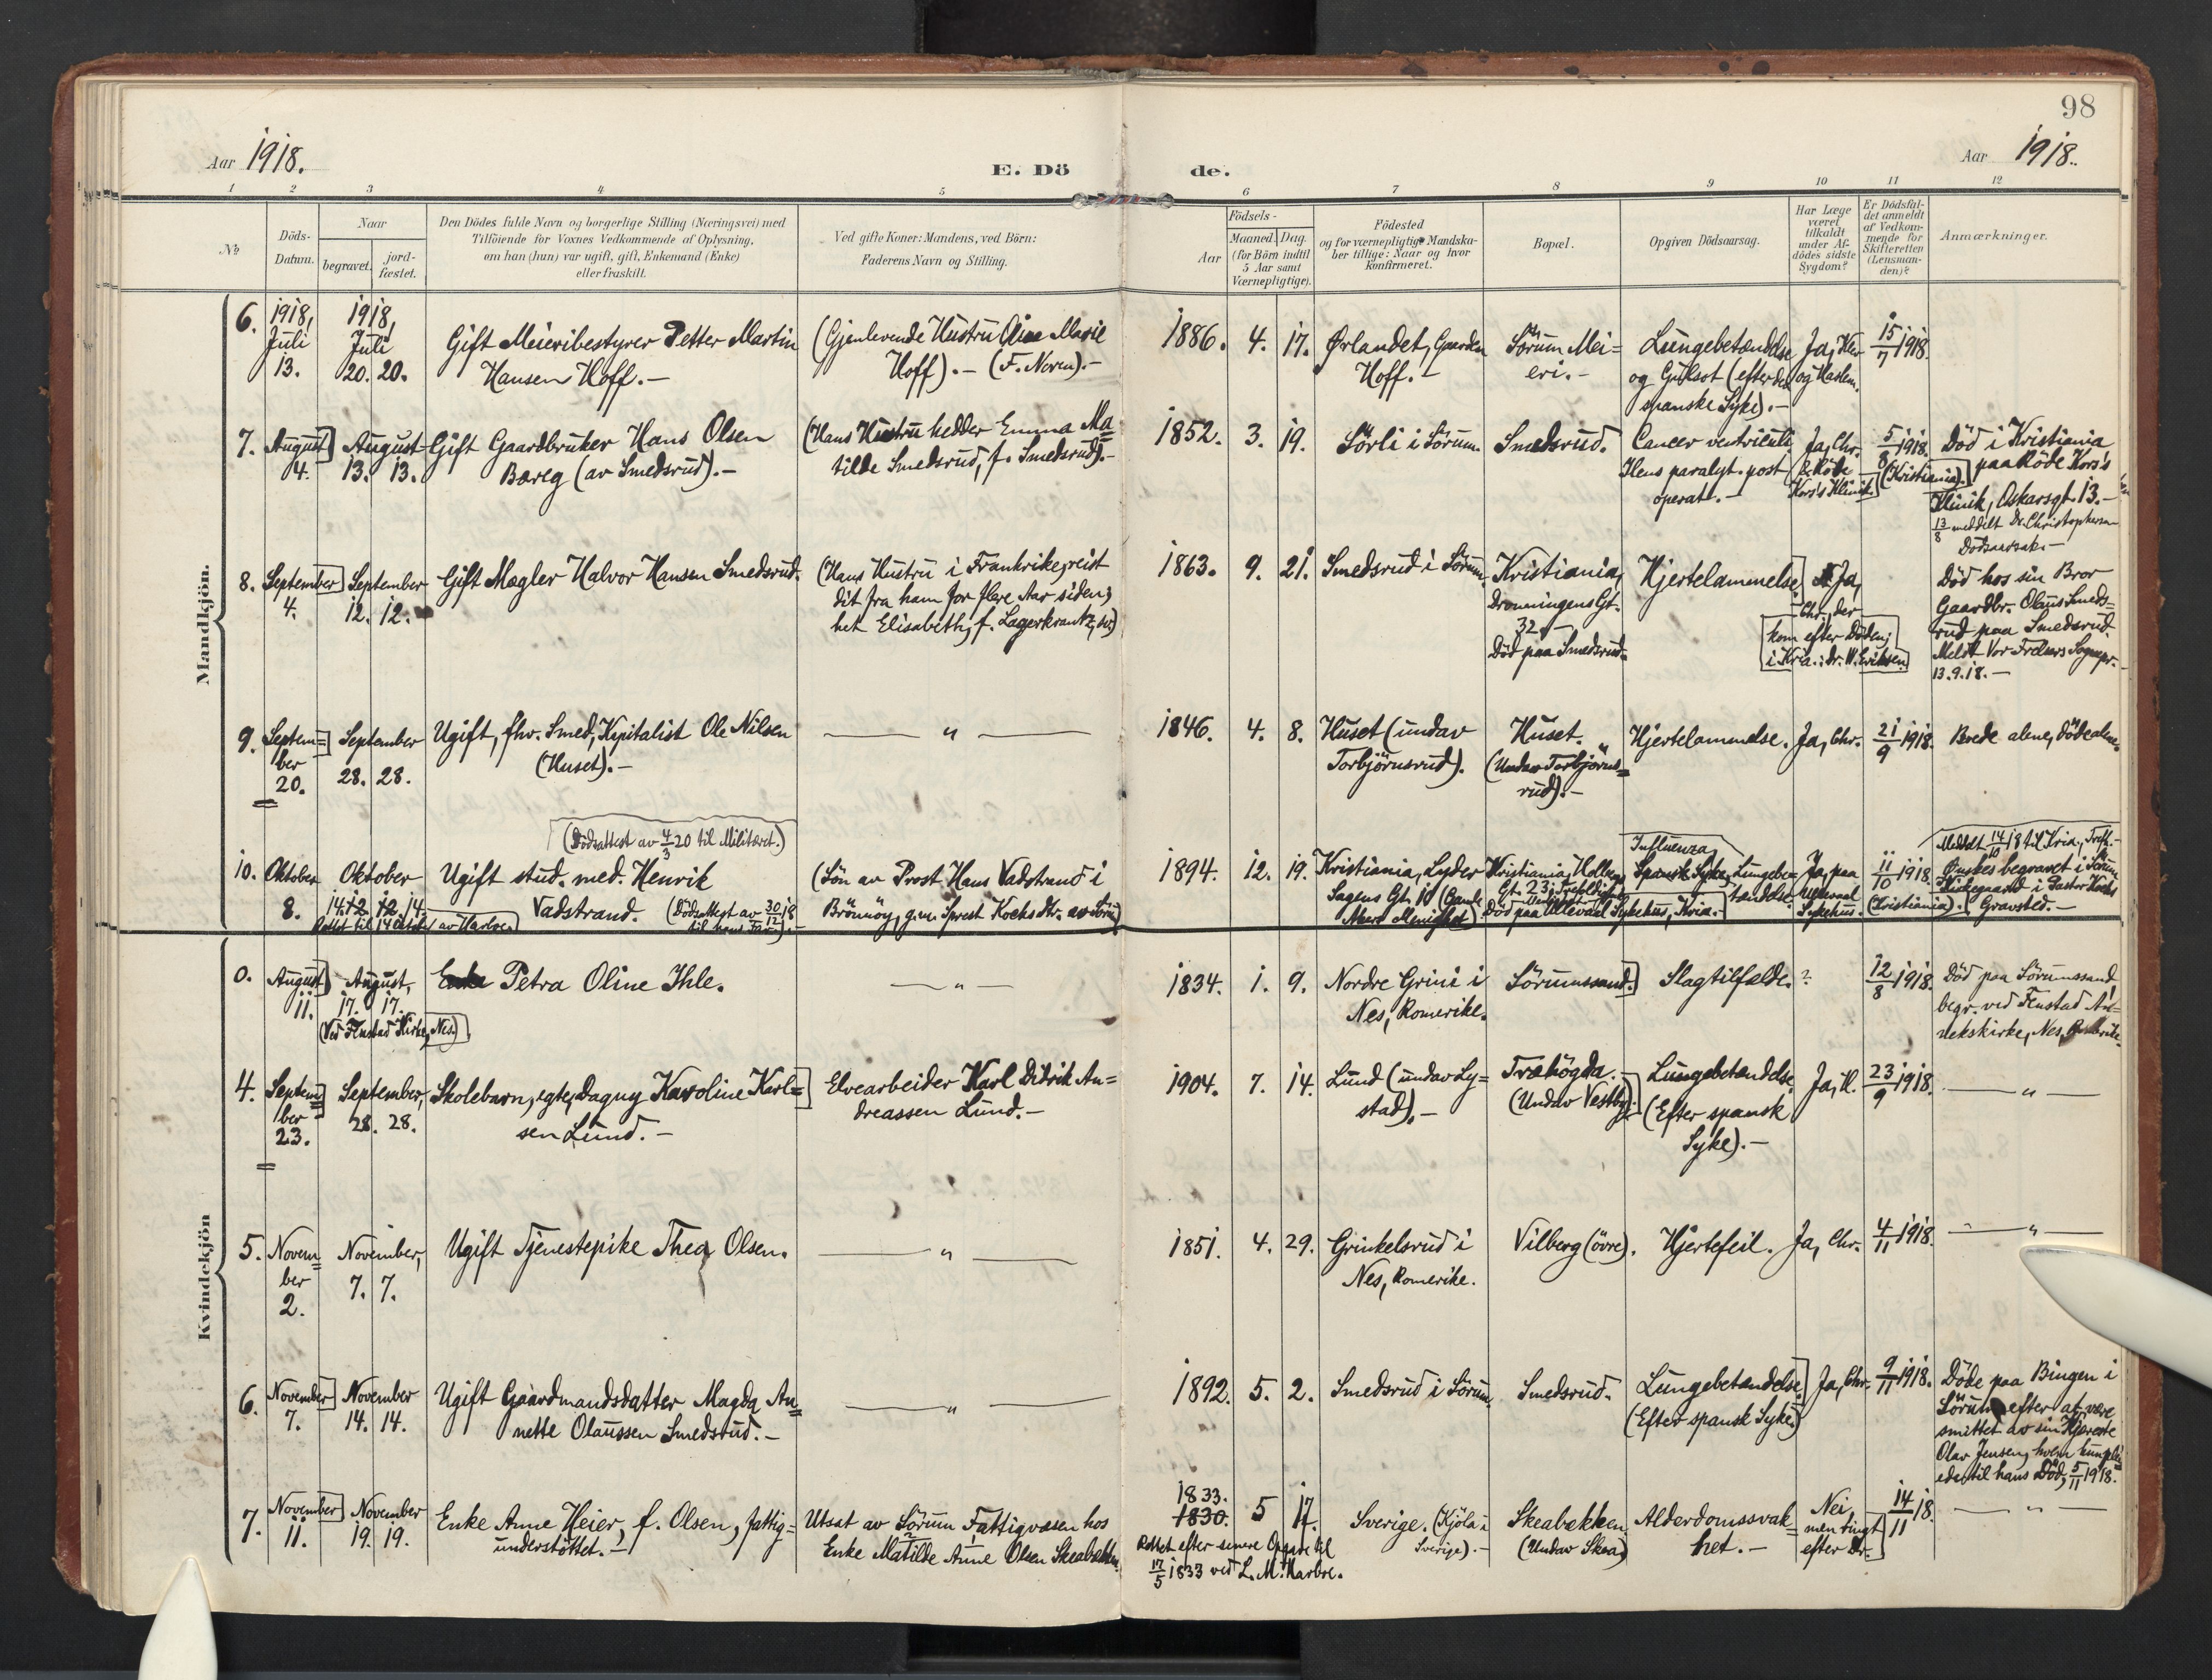 98
Aar 1918.
E. Dö de.
Aar 1918.
1 2 3 4 5 6 7 8 9 10 11 12
No
Döds-
Datum.
Naar
begravet.
jord-
fæstet.
Den Dödes fulde Navn og borgerlige Stilling (Næringsvei) med
Tilföiende for Voxnes Vedkommende af Oplysning,
om han (hun) var ugift, gift, Enkemand (Enke)
eller fraskilt.
Ved gifte Koner: Mandens, ved Börn:
Faderens Navn og Stilling.
Födsels-
Aar
Maaned. Dag.
(for Börn indtil
5 Aar samt
Værnepligtige).
Födested
og for værnepligtige Mandska-
ber tillige: Naar og hvor
konfirmeret.
Bopæl.
Opgiven Dödsaarsag.
Har Læge
været
tilkaldt
under Af-
dödes sidste
Sygdom?
Er Dödsfal-
det anmeldt
af Vedkom-
mende for
Skifteretten
(Lensman-
den)?
Anmærkninger.
Mandkjön.
6.
1918,
Juli
13.
1918,
Juli
20. 20.
Gift Meieribestyrer Petter Martin
Hansen Hoff.—
(Gjenlevende Hustru Oline Marie
Hoff).— (F. Noren).—
1886. 4. 17.
Ørlandet, Gaarden
Hoff.—
Sörum Mei=
eri.—
Lungebetændelse
og Gulsot (efter den
spanske Syke).—
Ja, Chr.
og Haslem.
15/7 1918.
7.
August
4.
August
13. 13.
Gift Gaardbruker Hans Olsen
Bareg (av Smedsrud).—
(Hans Hustru hedder Emma Ma=
tilde Smedsrud, f. Smedsrud).—
1852. 3. 19.
Sörli i Sörum.
Smedsrud.
Cancer ventriculi
Ileus paralyt. post
operat.—
Ja, Chr.
& Röde
Kors's Klinik.
5/8 1918.
(Kristiania).
Död i Kristiania
paa Röde Kors's
Klinik, Oskarsgt. 13.—
13/8 meddelt Dr. Christophersen
Dödsaarsak.—
8.
September
4.
September
12. 12.
Gift Mægler Halvor Hansen Smedsrud.
(Hans Hustru i Frankrike, reist
dit fra ham for flere Aar siden,
het Elisabeth, f. Lagerkrantz, sv.)
1863. 9. 21.
Smedsrud i Sörum.
Kristiania,
Dronningens Gt.
32.—
Död paa Smedsrud.
Hjertelammelse.
Ja,
Chr., der
kom efter Döden;
i Kra.: Dr. W. Eriksen.
Död hos sin Bror
Gaardbr. Olaus Smeds=
rud paa Smedsrud.
Meldt Vor Frelsers Sognepr.
13.9.18.—
9.
Septem=
ber
20.
September
28. 28.
Ugift, fhv. Smed, Kapitalist Ole Nilsen
(Huset).—
— „ —
1846. 4. 8.
Huset (undav
Torbjörnsrud).
Huset.
(Undav Torbjörns=
rud).—
Hjertelammelse.
Ja, Chr.
21/9 1918.
Boede alene, döde alene.
(Dödsattest av 4/3 20 til Militæret.)
10.
Oktober
8.
Oktober
14. 12 12 14.
Rettet til 14 Oktober av Harboe.
Ugift stud. med. Henrik
Vadstrand. (Dödsattest av 30/12 18
til hans Far).—
(Sön av Prost Hans Vadstrand i
Brönnöy, g.m. Sprest Kochs Dtr. av Sörum)
1894. 12. 19.
Kristiania, Lyder
Sagens Gt. 10 (Gamle
Akers Menighet)
Gt. 23 i Trefoldigh.
Död paa Ullevaal Sykehus, Kria.
Influenza,
Spansk Syke, Lungebe=
tændelse.
Ja, paa
Ullevaal
Sykehus.
11/10 1918.
(Kristiania).
Meddelt 14/10 18 til Kria., Trefh.—
Ønskes begravet i Sörum
Kirkegaard i Pastor Kochs
Gravsted.—
Kvindekjön
0.
August
11.
August,
17. 17.
(Ved Fenstad Kirke, Nes.)
Enke Petra Oline Ihle.
— „ —
1834. 1. 9.
Nordre Grini i
Nes, Romerike.
Sörumssand.
Slagtilfælde.
?
12/8 1918.
Död paa Sörumssand,
begr. ved Fenstad An=
nekskirke, Nes, Romerike.
4.
Septem=
ber
23.
September,
28. 28.
Skolebarn, egte, Dagny Karoline Karl=
sen Lund.—
Elvearbeider Karl Didrik An=
dreassen Lund.—
1904. 7. 14.
Lund (undav Ly=
stad).—
Træhögda.—
(Undav Vestby).
Lungebetændelse
(Efter spansk
Syke).—
Ja, H.
23/9 1918.
— „ —
5.
Novem=
ber
2.
November,
7. 7.
Ugift Tjenestepike Thea Olsen.
— „ —
1851. 4. 29.
Grinkelsrud i
Nes, Romerike.
Vilberg (övre).
Hjertefeil.
Ja, Chr.
4/11 1918.
— „ —
6.
November
7.
November
14. 14.
Ugift Gaardmandsdatter Magda An=
nette Olaussen Smedsrud.—
— „ —
1892. 5. 2.
Smedsrud i Sörum.
Smedsrud.
Lungebetændelse
(Efter spansk Syke)
Ja, Chr.
9/11 1918.
Döde paa Bingen i
Sörum efter at være
smittet av sin Kjæreste
Olav Jensen, hvem hun plei=
ede til hans Död, 5/11 1918.
7.
November
11.
November
19. 19.
Enke Anne Heier, f. Olsen, fattig=
understöttet.—
Utsat av Sörum Fattigvæsen hos
Enke Matilde Anne Olsen Skeabækken
1833.
1830. 5 17.
Rettet efter senere Opgave til
17/5 1833 ved L. M. Harboe.
Sverige. (Kjöla i
Sverige).—
Skeabækken.
(Undav Skea)
Alderdomssvak=
het.—
Nei,
men ringt
efter Dr.
14/11 18.
— „ —